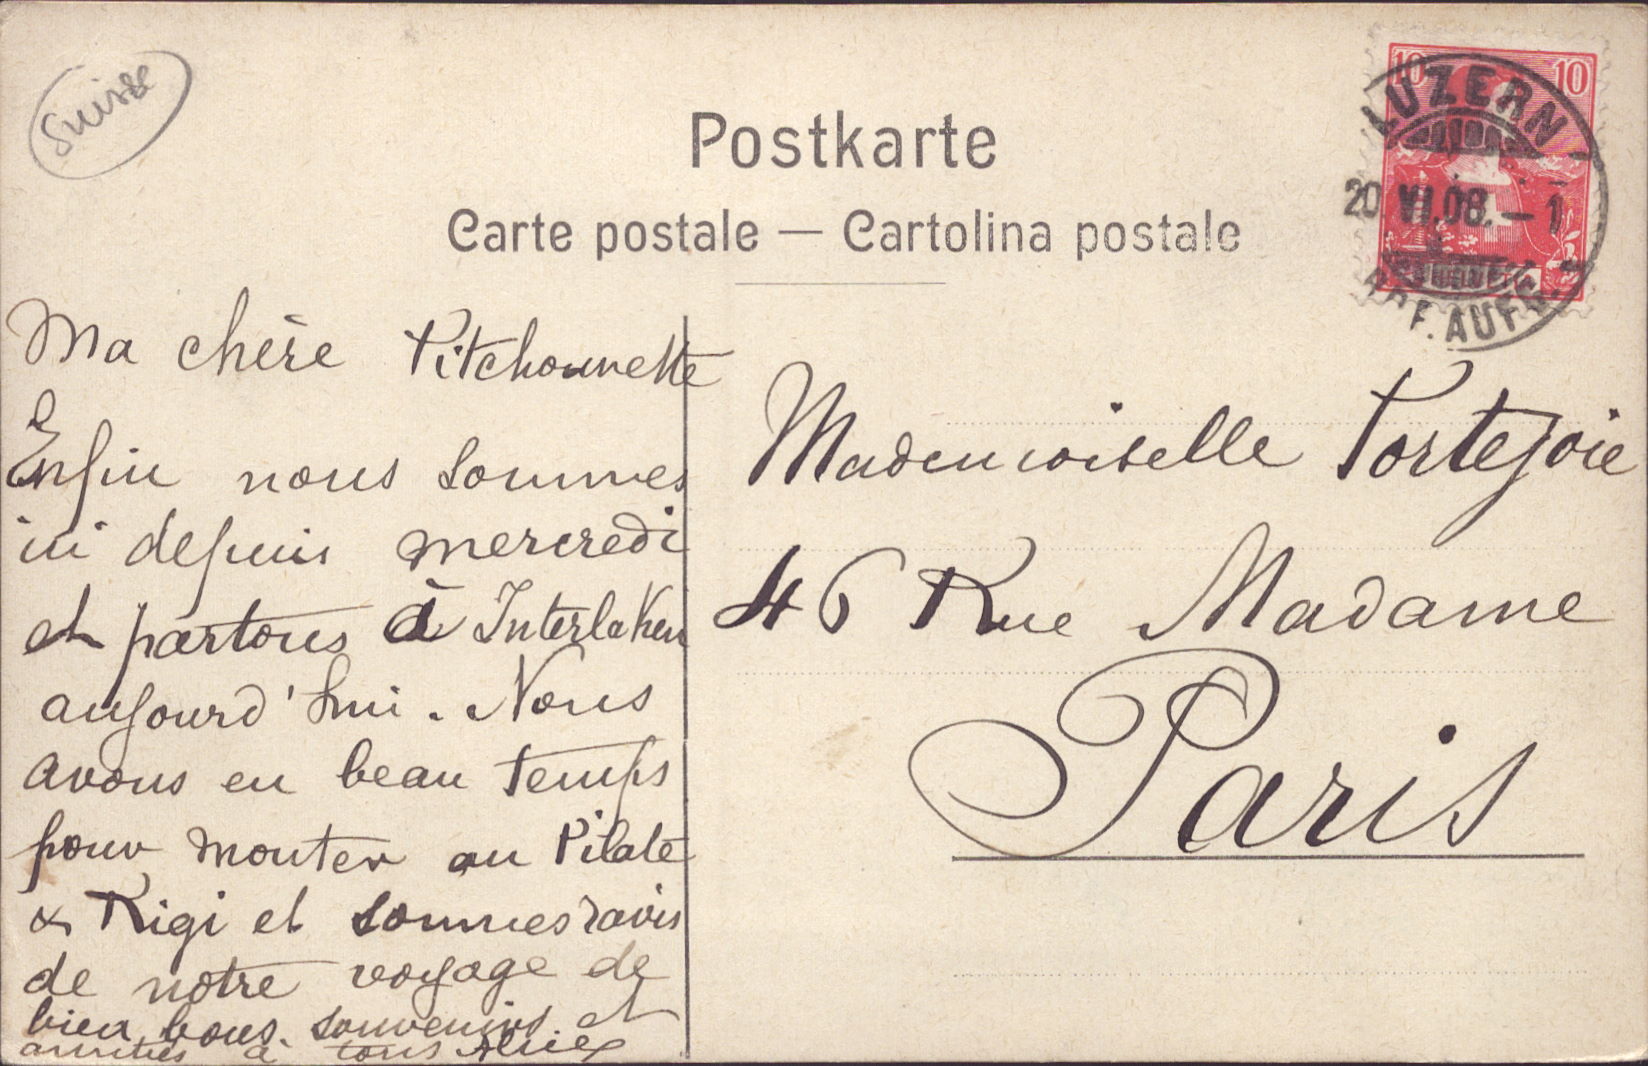 Suisse
Postkarte
Carte postale — Cartolina postale
10 10
LUZERN
20 VI.08. – 1
BRF. AUFG.
Ma chère Pitchounette
Enfin nous sommes
ici depuis mercredi
et partons à Interlaken
aujourd'hui. Nous
avons eu beau temps
pour monter au Pilate
& Rigi et sommes ravis
de notre voyage de
bien bons souvenirs et
amitiés à tous
Mademoiselle Portejoie
46 Rue Madame
Paris